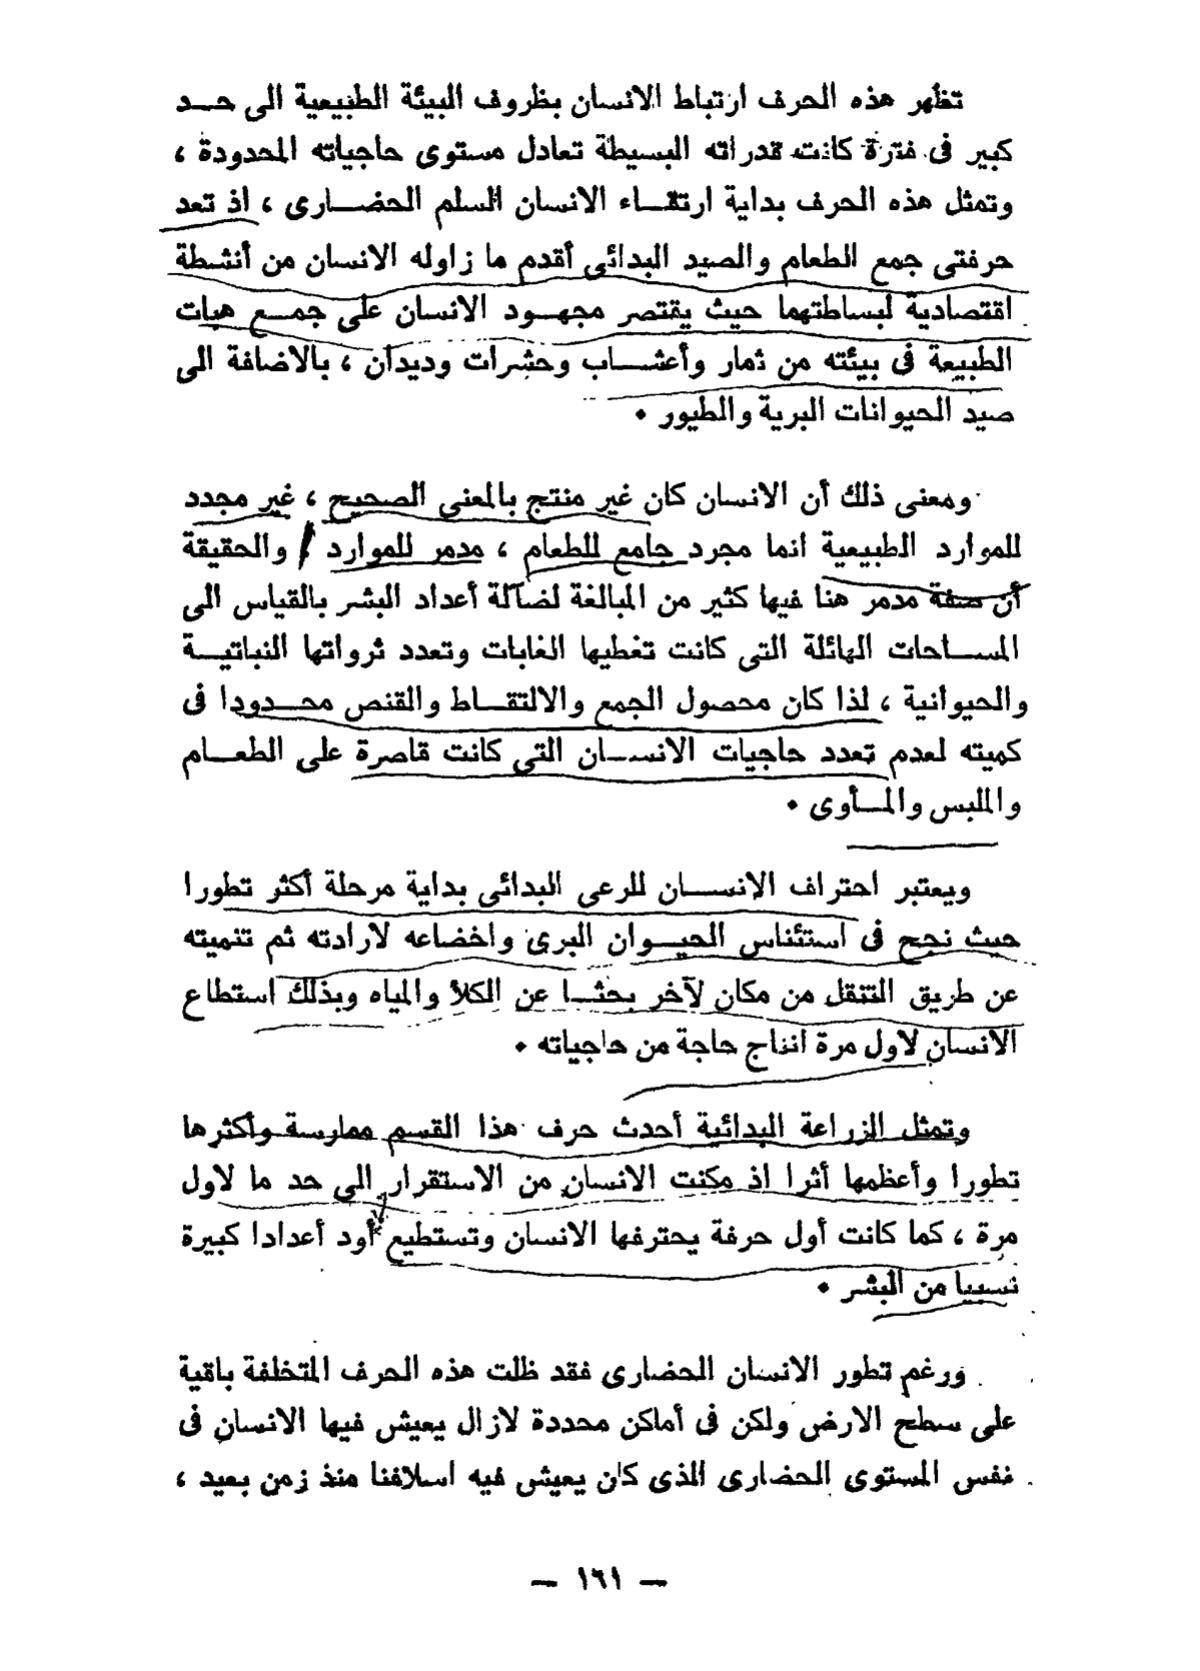 تظهر هذه الحرف ارتباط الانسان بظروف البيئة الطبيعية الى حـــد
كبير فى فترة كانت قدراته البسيطة تعادل مستوى حاجياته المحدودة ،
وتمثل هذه الحرف بداية ارتقـــاء الانسان السلم الحضـــارى ، اذ تعد
حرفتى جمع الطعام والصيد البدائى أقدم ما زاوله الانسان من أنشطة
اقتصادية لبساطتهما حيث يقتصر مجهـــود الانسان على جمـــع هبات
الطبيعة فى بيئته من ثمار وأعشـــاب وحشرات وديدان ، بالاضافة الى
صيد الحيوانات البرية والطيور •
ومعنى ذلك أن الانسان كان غير منتج بالمعنى الصحيح ، غير مجدد
للموارد الطبيعية انما مجرد جامع للطعام ، مدمر للموارد / والحقيقة
أن صفة مدمر هنا فيها كثير من المبالغة لضآلة أعداد البشر بالقياس الى
المســاحات الهائلة التى كانت تغطيها الغابات وتعدد ثرواتها النباتيـــة
والحيوانية ، لذا كان محصول الجمع والالتقـــاط والقنص محـــدودا فى
كميته لعدم تعدد حاجيات الانســـان التى كانت قاصرة على الطعـــام
والملبس والمـــأوى •
ويعتبر احتراف الانســـان للرعى البدائى بداية مرحلة أكثر تطورا
حيث نجح فى استئناس الحيـــوان البرى واخضاعه لارادته ثم تنميته
عن طريق التنقل من مكان لآخر بحثـــا عن الكلأ والمياه وبذلك استطاع
الانسان لاول مرة انتاج حاجة من حاجياته •
وتمثل الزراعة البدائية أحدث حرف هذا القسم ممارسة وأكثرها
تطورا وأعظمها أثرا اذ مكنت الانسان من الاستقرار الى حد ما لاول
مرة ، كما كانت أول حرفة يحترفها الانسان وتستطيع أود أعدادا كبيرة
نسبيا من البشر •
ورغم تطور الانسان الحضارى فقد ظلت هذه الحرف المتخلفة باقية
على سطح الارض ولكن فى أماكن محددة لازال يعيش فيها الانسان فى
نفس المستوى الحضارى الذى كان يعيش فيه اسلافنا منذ زمن بعيد ،
— ١٦١ —